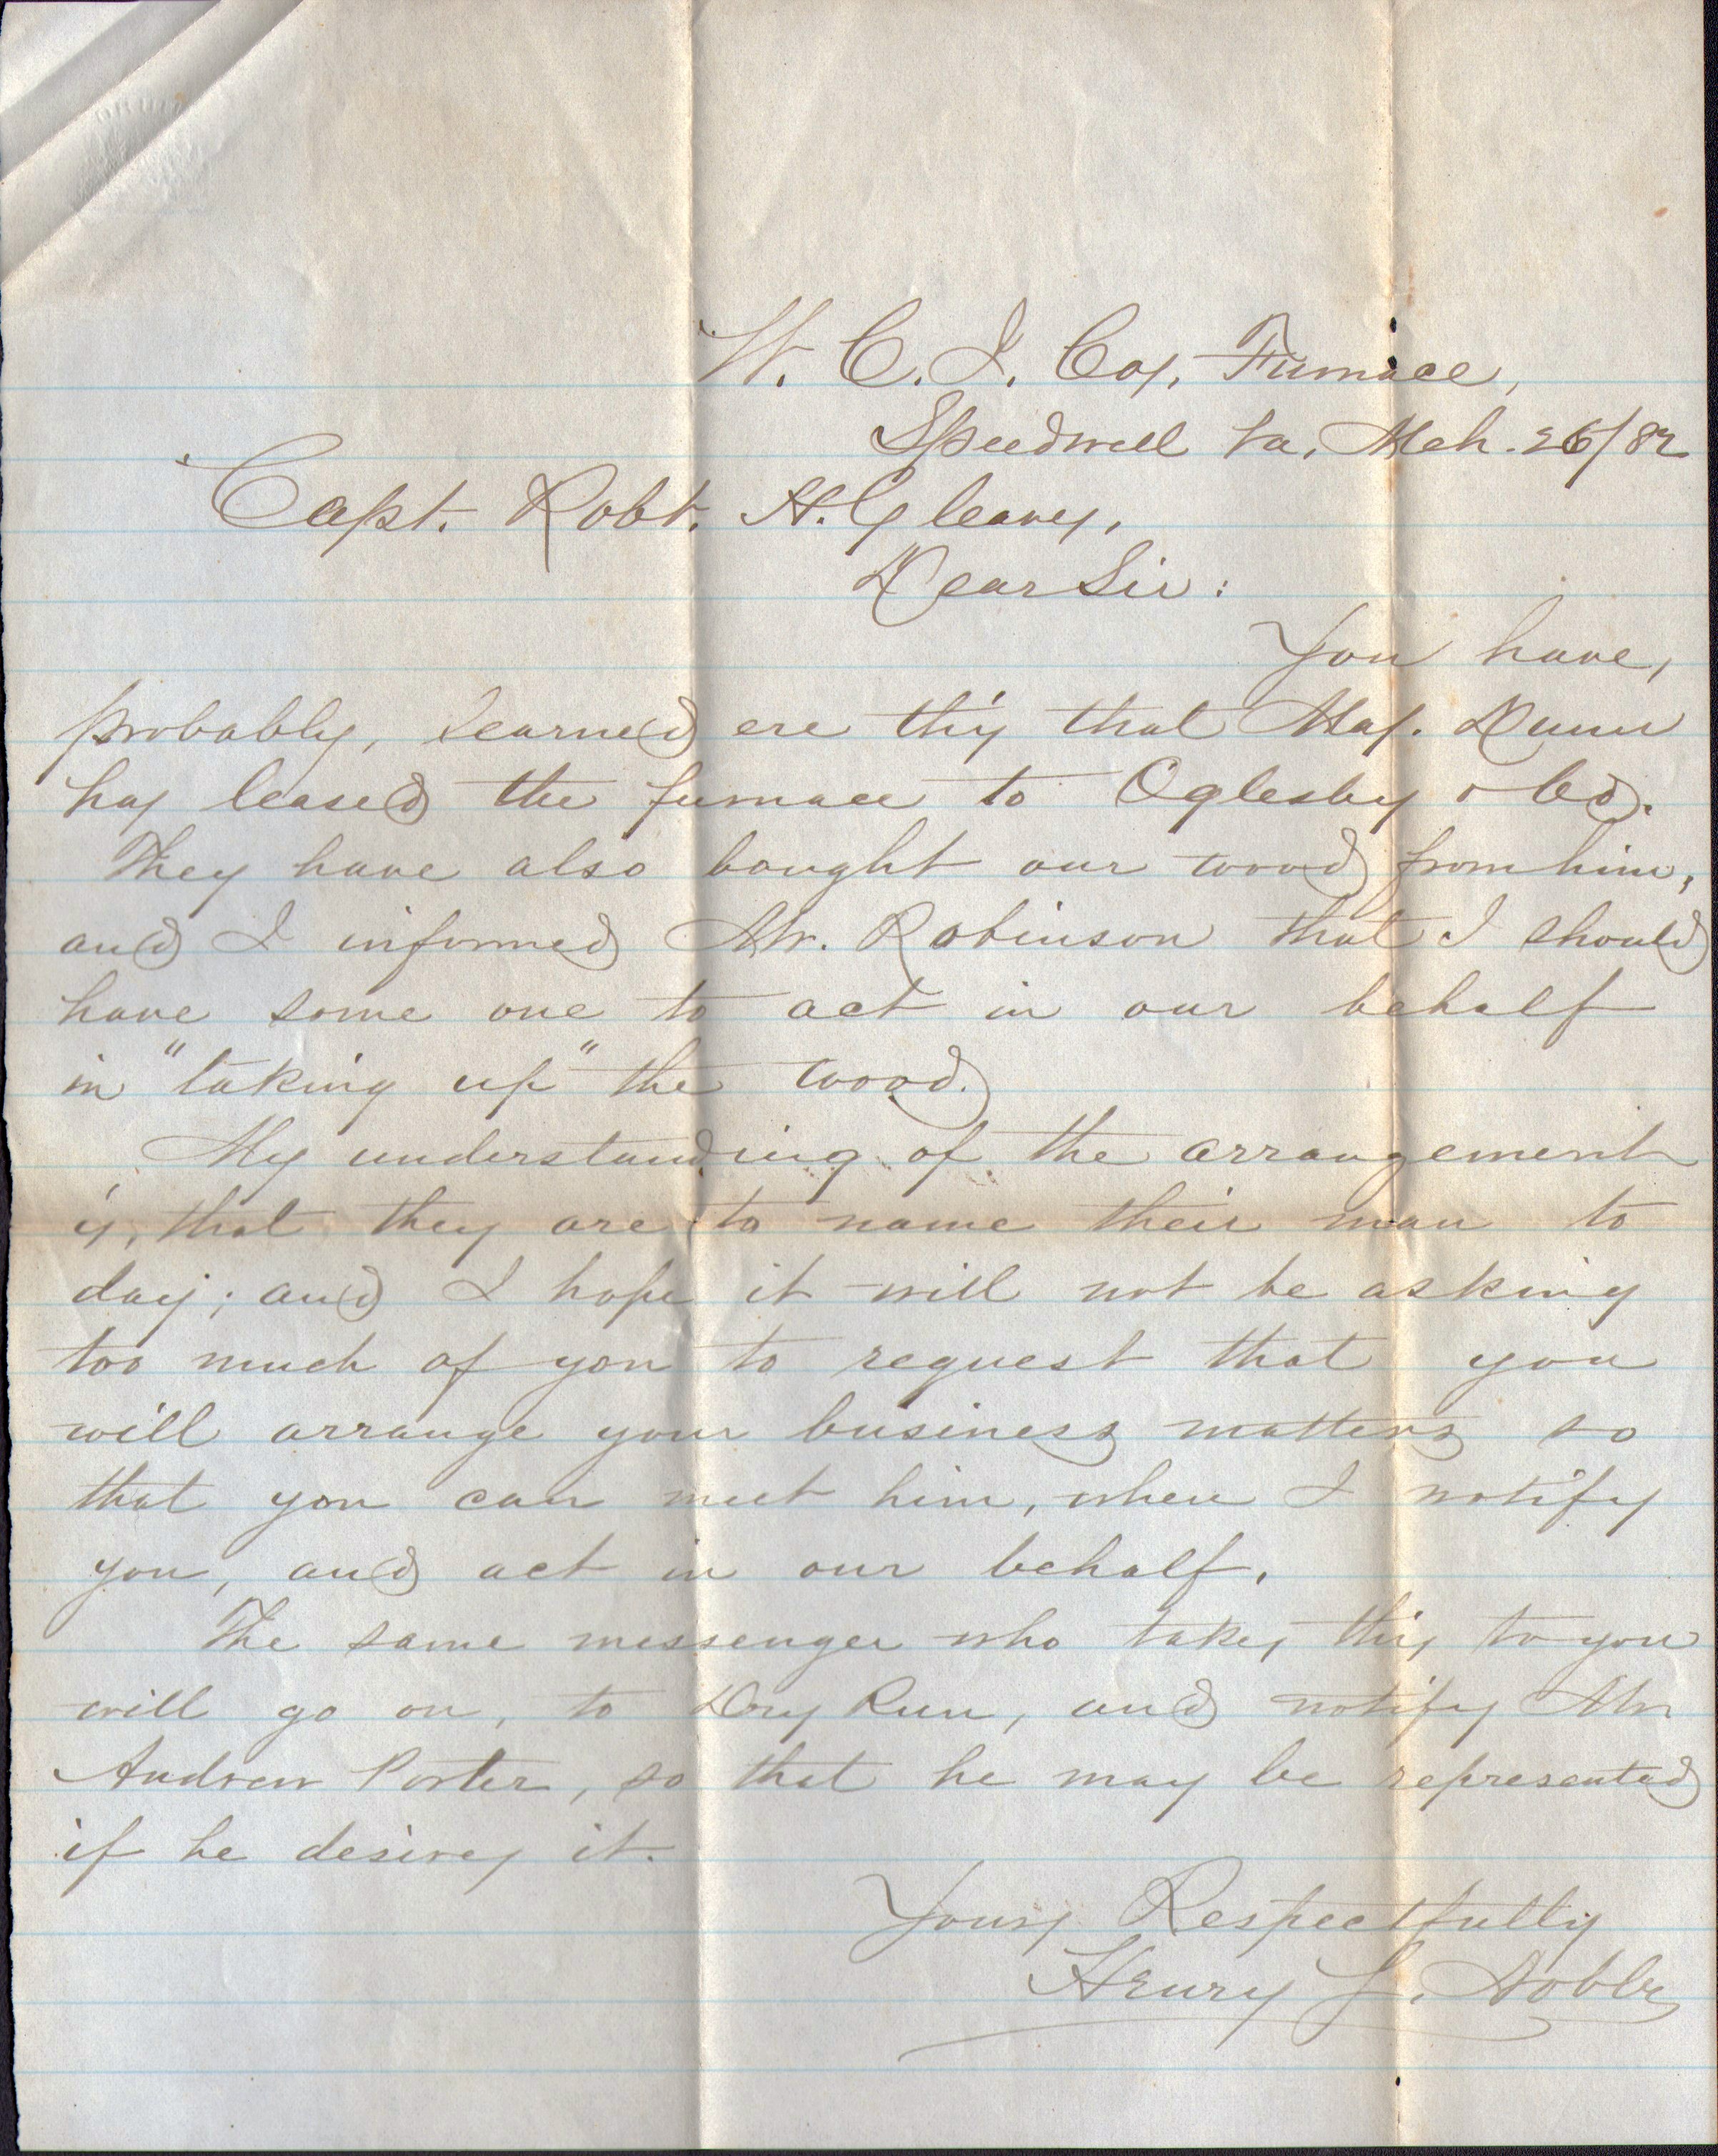 W. C. I. Co's. Furnace,
Speedwell Va, Mch. 26/82
Capt. Robt. H. Gleavy,
Dear Sir:
You have,
probably, learned ere this that Maj. Dunn
has leased the furnace to Oglesby & Co.
They have also bought our wood from him,
and I informed Mr. Robinson that I should
have some one to act in our behalf
in "taking up" the wood.
My understanding of the arrangement
is, that they are to name their man to
day; and I hope it will not be asking
too much of you to request that you
will arrange your business matters so
that you can meet him, when I notify
you, and act in our behalf.
The same messenger who takes this to you
will go on, to Dry Run, and notify Mr
Andrew Porter, so that he may be represented
if he desires it.
Yours Respectfully
Henry J. Noble